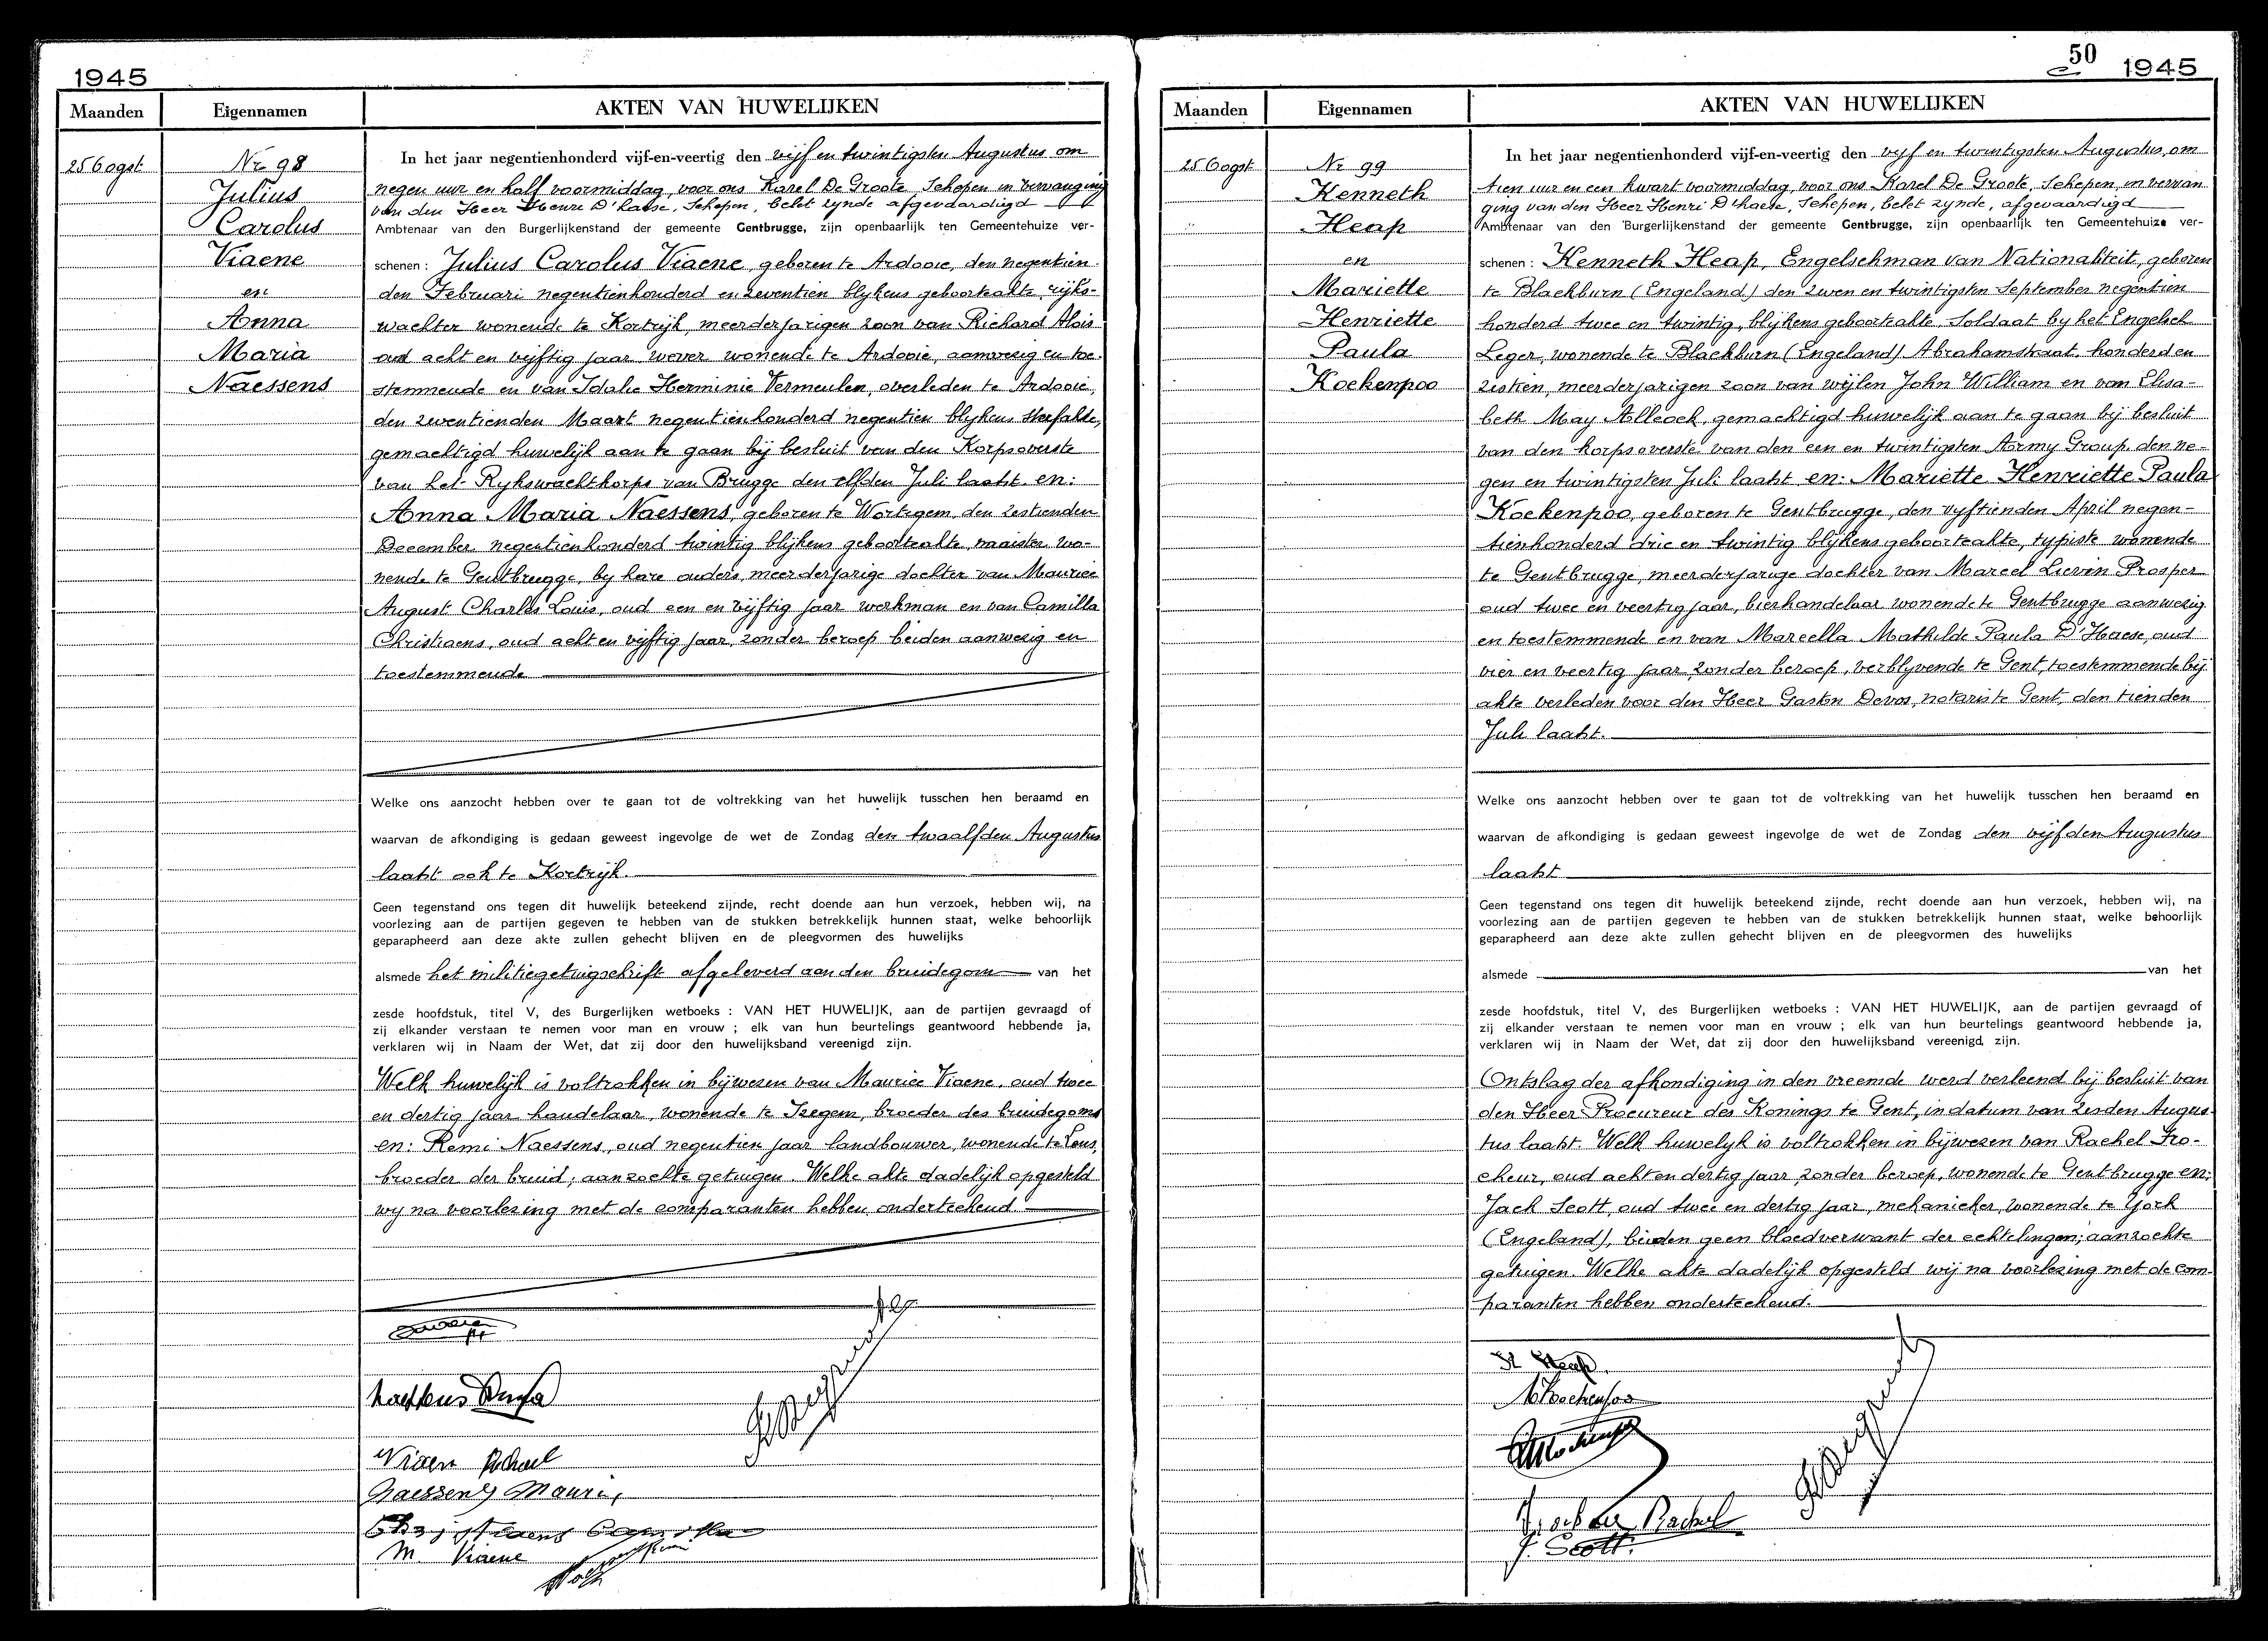 1945
Maanden Eigennamen AKTEN VAN HUWELIJKEN
25 Oogst Nr 98
Julius
Carolus
Viaene
en
Anna
Maria
Naessens
In het jaar negentienhonderd vijf-en-veertig den vijf en twintigsten Augustus om
negen uur en half voormiddag, voor ons Karel De Groote, Schepen in vervanging
van den Heer Henri D'haese, Schepen, belet zynde afgevaardigd
Ambtenaar van den Burgerlijkenstand der gemeente Gentbrugge, zijn openbaarlijk ten Gemeentehuize ver-
schenen : Julius Carolus Viaene, geboren te Ardooie, den negentien
den Februari negentienhonderd en zeventien blykens geboorteakte, rijks-
wachter wonende te Kortrijk, meerderjarigen zoon van Richard Alois
oud acht en vijftig jaar wever wonende te Ardooie, aanwezig en toe-
stemmende en van Idalie Herminie Vermeulen, overleden te Ardooie,
den zeventienden Maart negentienhonderd negentien blykens sterfakte,
gemachtigd huwelijk aan te gaan bij besluit van den Korpsoverste
van het Rykswachtkorps van Brugge den elfden Juli laatst en:
Anna Maria Naessens, geboren te Wortegem, den zestienden
December negentienhonderd twintig blijkens geboorteakte, naaister wo-
nende te Gentbrugge, by hare ouders, meerderjarige dochter van Maurice
August Charles Louis, oud een en vijftig jaar werkman en van Camilla
Christiaens, oud acht en vijftig jaar, zonder beroep beiden aanwezig en
toestemmende
Welke ons aanzocht hebben over te gaan tot de voltrekking van het huwelijk tusschen hen beraamd en
waarvan de afkondiging is gedaan geweest ingevolge de wet de Zondag den twaalfden Augustus
laatst ook te Kortrijk.
Geen tegenstand ons tegen dit huwelijk beteekend zijnde, recht doende aan hun verzoek, hebben wij, na
voorlezing aan de partijen gegeven te hebben van de stukken betrekkelijk hunnen staat, welke behoorlijk
geparapheerd aan deze akte zullen gehecht blijven en de pleegvormen des huwelijks
alsmede het militiegetuigschrift afgeleverd aan den bruidegom van het
zesde hoofdstuk, titel V, des Burgerlijken wetboeks : VAN HET HUWELIJK, aan de partijen gevraagd of
zij elkander verstaan te nemen voor man en vrouw ; elk van hun beurtelings geantwoord hebbende ja,
verklaren wij in Naam der Wet, dat zij door den huwelijksband vereenigd zijn.
Welk huwelijk is voltrokken in bijwezen van Maurice Viaene, oud twee
en dertig jaar handelaar, wonende te Izegem, broeder des bruidegoms
en: Remi Naessens, oud negentien jaar landbouwer, wonende te
broeder der bruid; aanzochte getuigen. Welke akte dadelijk opgesteld
wy na voorlezing met de comparanten hebben onderteekend.
Naessens Anna
Viaen Richard
Naessens Mauri
Christiaens Camilla
M. Viaene
50 1945
Maanden Eigennamen AKTEN VAN HUWELIJKEN
25 Oogst Nr 99
Kenneth
Heap
en
Mariette
Henriette
Paula
Koekenpoo
In het jaar negentienhonderd vijf-en-veertig den vijf en twintigsten Augustus, om
tien uur en een kwart voormiddag, voor ons Karel De Groote, Schepen, in vervan
ging van den Heer Henri D'haese, Schepen, belet zynde, afgevaardigd
Ambtenaar van den Burgerlijkenstand der gemeente Gentbrugge, zijn openbaarlijk ten Gemeentehuize ver-
schenen : Kenneth Heap, Engelschman van Nationaliteit, geboren
te Blackburn (Engeland) den zeven en twintigsten September negentien
honderd twee en twintig, blijkens geboorteakte, Soldaat by het Engelsch
Leger, wonende te Blackburn (Engeland) Abrahamstraat, honderd en
zestien, meerderjarigen zoon van wijlen John William en van Elisa-
beth May Allcock, gemachtigd huwelijk aan te gaan bij besluit
van den korpsoverste van den een en twintigsten Army Group, den ne-
gen en twintigsten Juli laatst en: Mariette Henriette Paula
Koekenpoo, geboren te Gentbrugge, den vyftienden April negen-
tienhonderd drie en twintig blijkens geboorteakte, typiste wonende
te Gentbrugge, meerderjarige dochter van Marcel Lievin Prosper
oud twee en veertig jaar, bierhandelaar wonende te Gentbrugge aanwezig
en toestemmende en van Marcella Mathilde Paula D'Haese, oud
vier en veertig jaar, zonder beroep, verblyvende te Gent, toestemmende bij
akte verleden voor den Heer Gaston Devos, notaris te Gent, den tienden
Juli laatst.
Welke ons aanzocht hebben over te gaan tot de voltrekking van het huwelijk tusschen hen beraamd en
waarvan de afkondiging is gedaan geweest ingevolge de wet de Zondag den vijfden Augustus
laatst
Geen tegenstand ons tegen dit huwelijk beteekend zijnde, recht doende aan hun verzoek, hebben wij, na
voorlezing aan de partijen gegeven te hebben van de stukken betrekkelijk hunnen staat, welke behoorlijk
geparapheerd aan deze akte zullen gehecht blijven en de pleegvormen des huwelijks
alsmede van het
zesde hoofdstuk, titel V, des Burgerlijken wetboeks : VAN HET HUWELIJK, aan de partijen gevraagd of
zij elkander verstaan te nemen voor man en vrouw ; elk van hun beurtelings geantwoord hebbende ja,
verklaren wij in Naam der Wet, dat zij door den huwelijksband vereenigd zijn.
Ontslag der afkondiging in den vreemde werd verleend bij besluit van
den Heer Procureur des Konings te Gent, in datum van zesden Augus
tus laatst. Welk huwelyk is voltrokken in bijwezen van Rachel Fro-
cheur, oud acht en dertig jaar, zonder beroep, wonende te Gentbrugge en:
Jack Scott, oud twee en dertig jaar, mekanieker, wonende te York
(Engeland), beiden geen bloedverwant der echtelingen; aanzochte
getuigen. Welke akte dadelijk opgesteld wij na voorlezing met de com-
paranten hebben onderteekend.
K Heap.
M Koekenpoo
Frocheur Rachel
J. Scott.